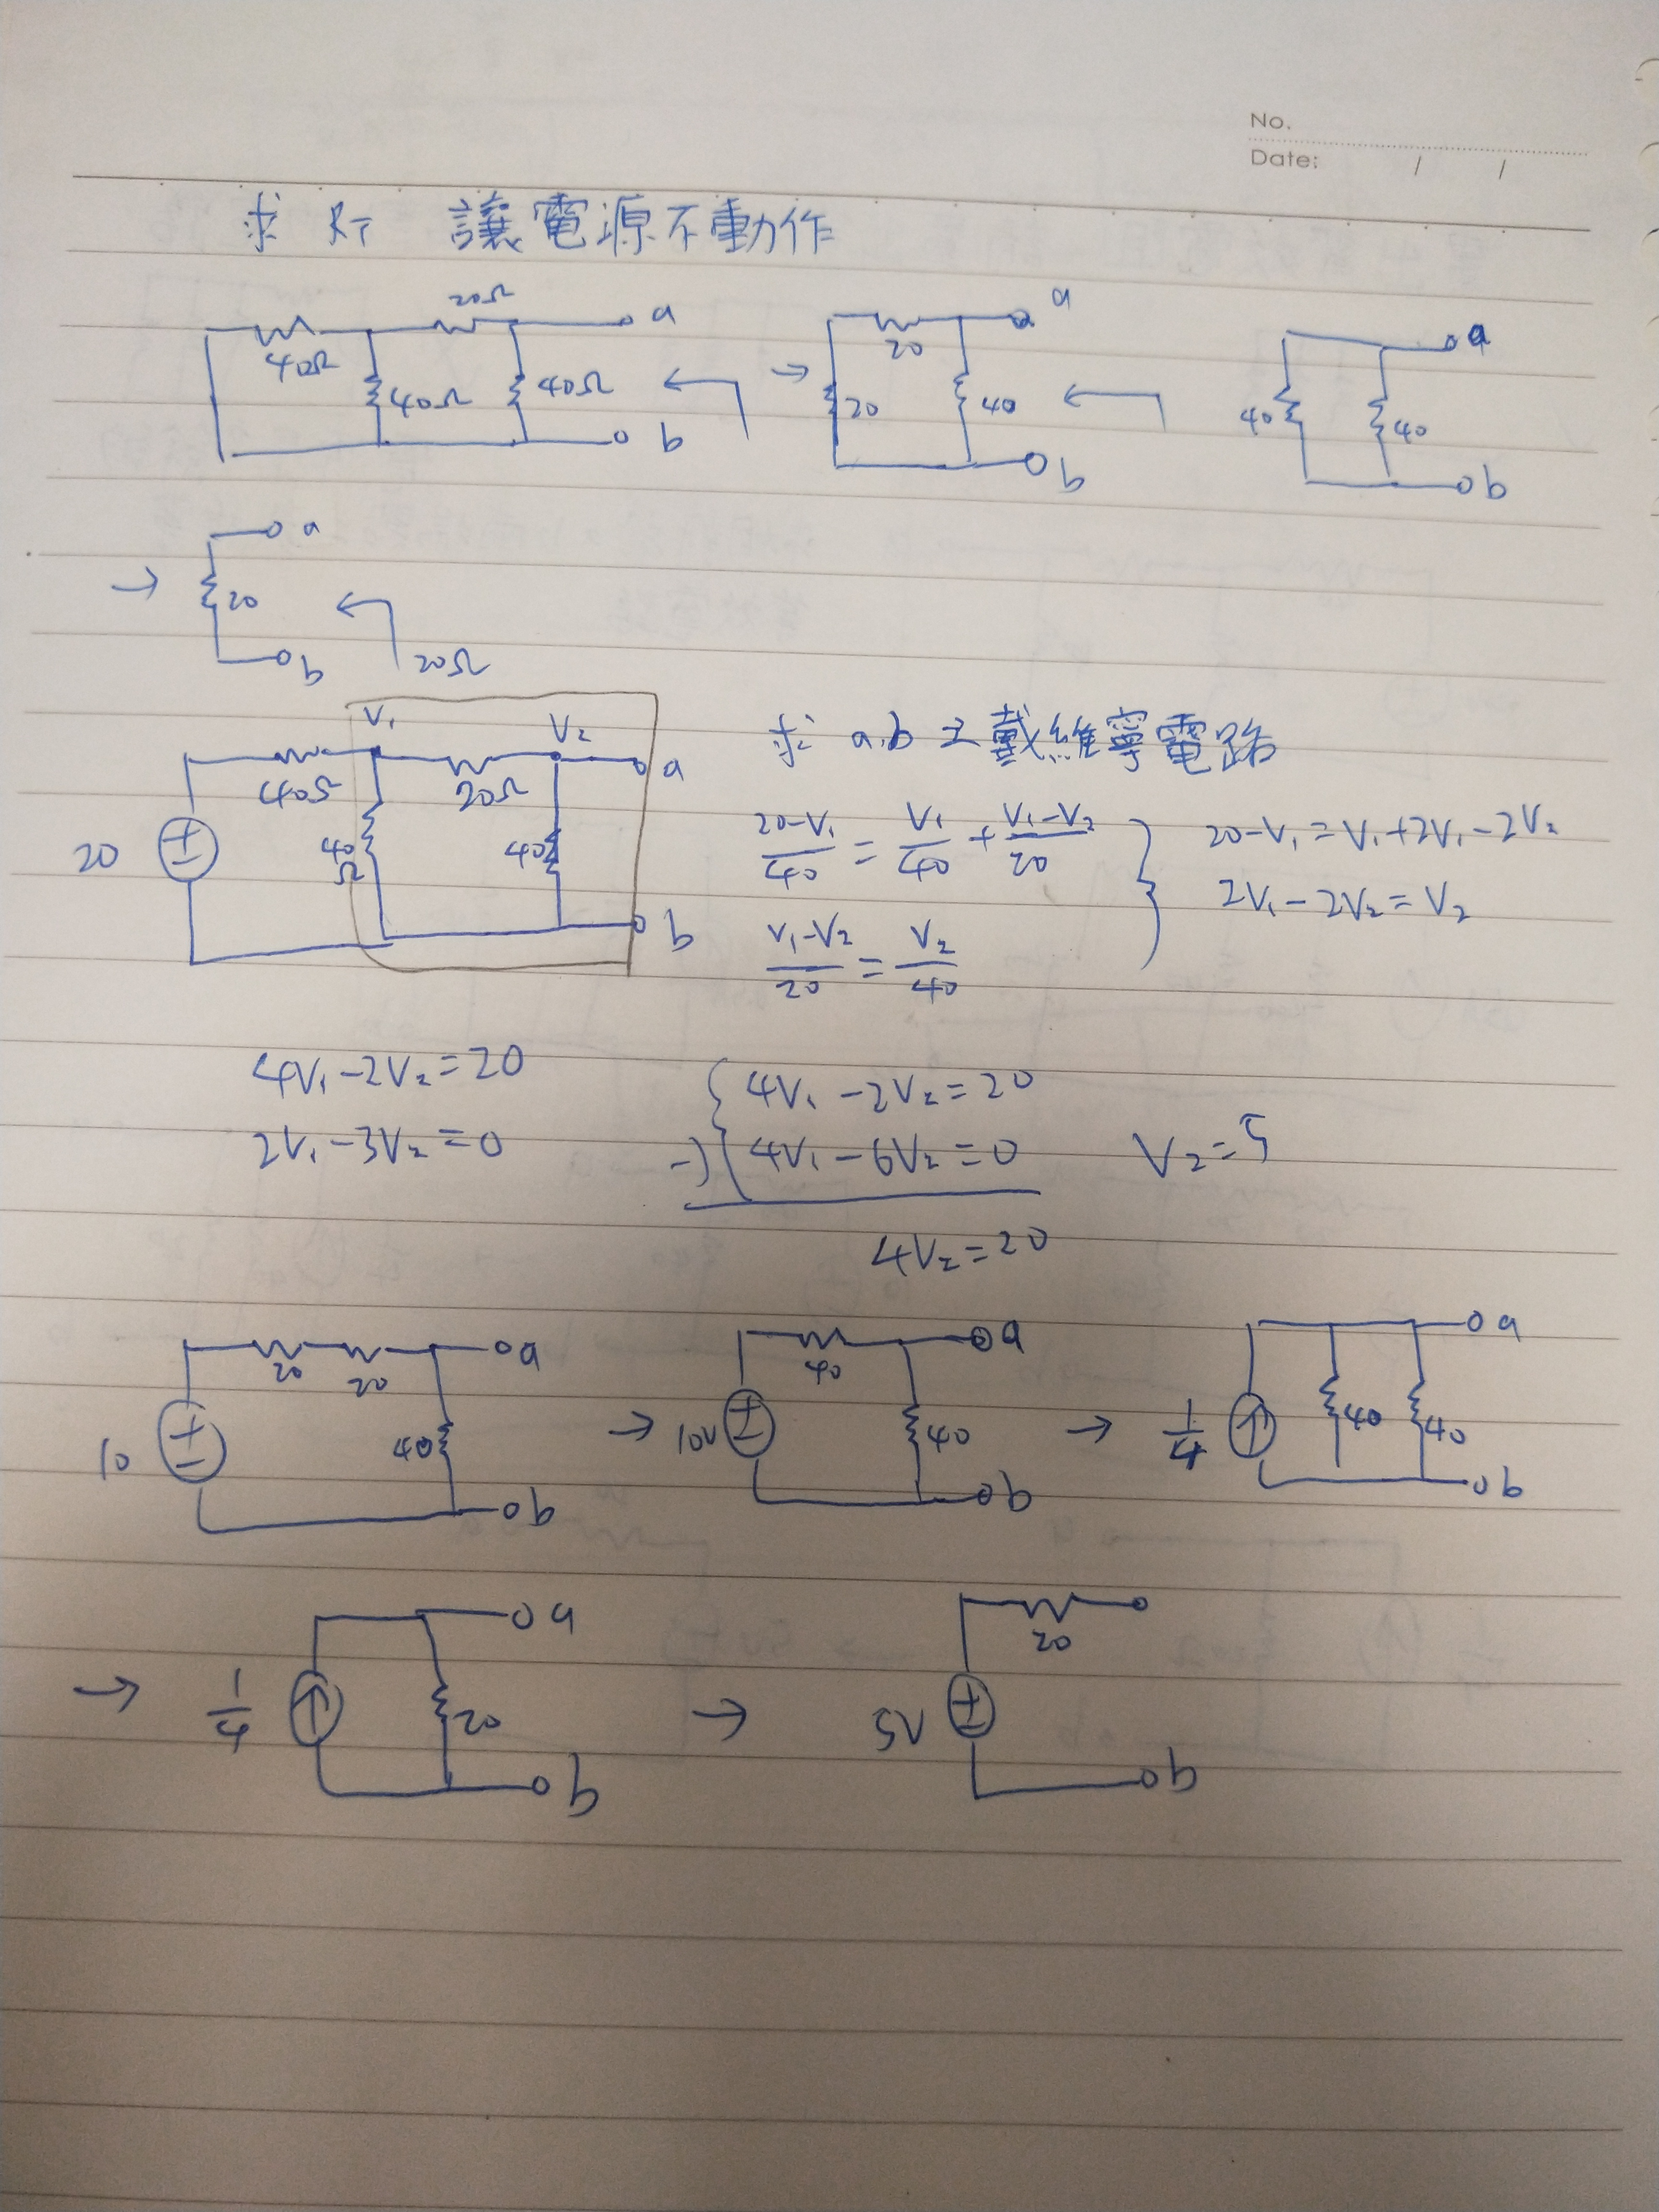 No.
Date: / /
求 RT 讓電源不動作
20Ω
40Ω
40Ω
40Ω
a
b
→
20
20
40
a
b
40
40
a
b
→
20
a
b
20Ω
V₁ V₂
求 a,b 之戴維寧電路
20
40Ω
20Ω
40Ω
40
a
b
(20-V₁)/40 = V₁/40 + (V₁-V₂)/20
(V₁-V₂)/20 = V₂/40
20-V₁=V₁+2V₁-2V₂
2V₁-2V₂=V₂
4V₁-2V₂=20
2V₁-3V₂=0
4V₁-2V₂=20
-) 4V₁-6V₂=0
4V₂=20
V₂=5
10
+
-
20
20
40
a
b
→
10V
40
40
a
b
→
1/4
40
40
a
b
→
1/4
20
a
b
→
5V
20
b